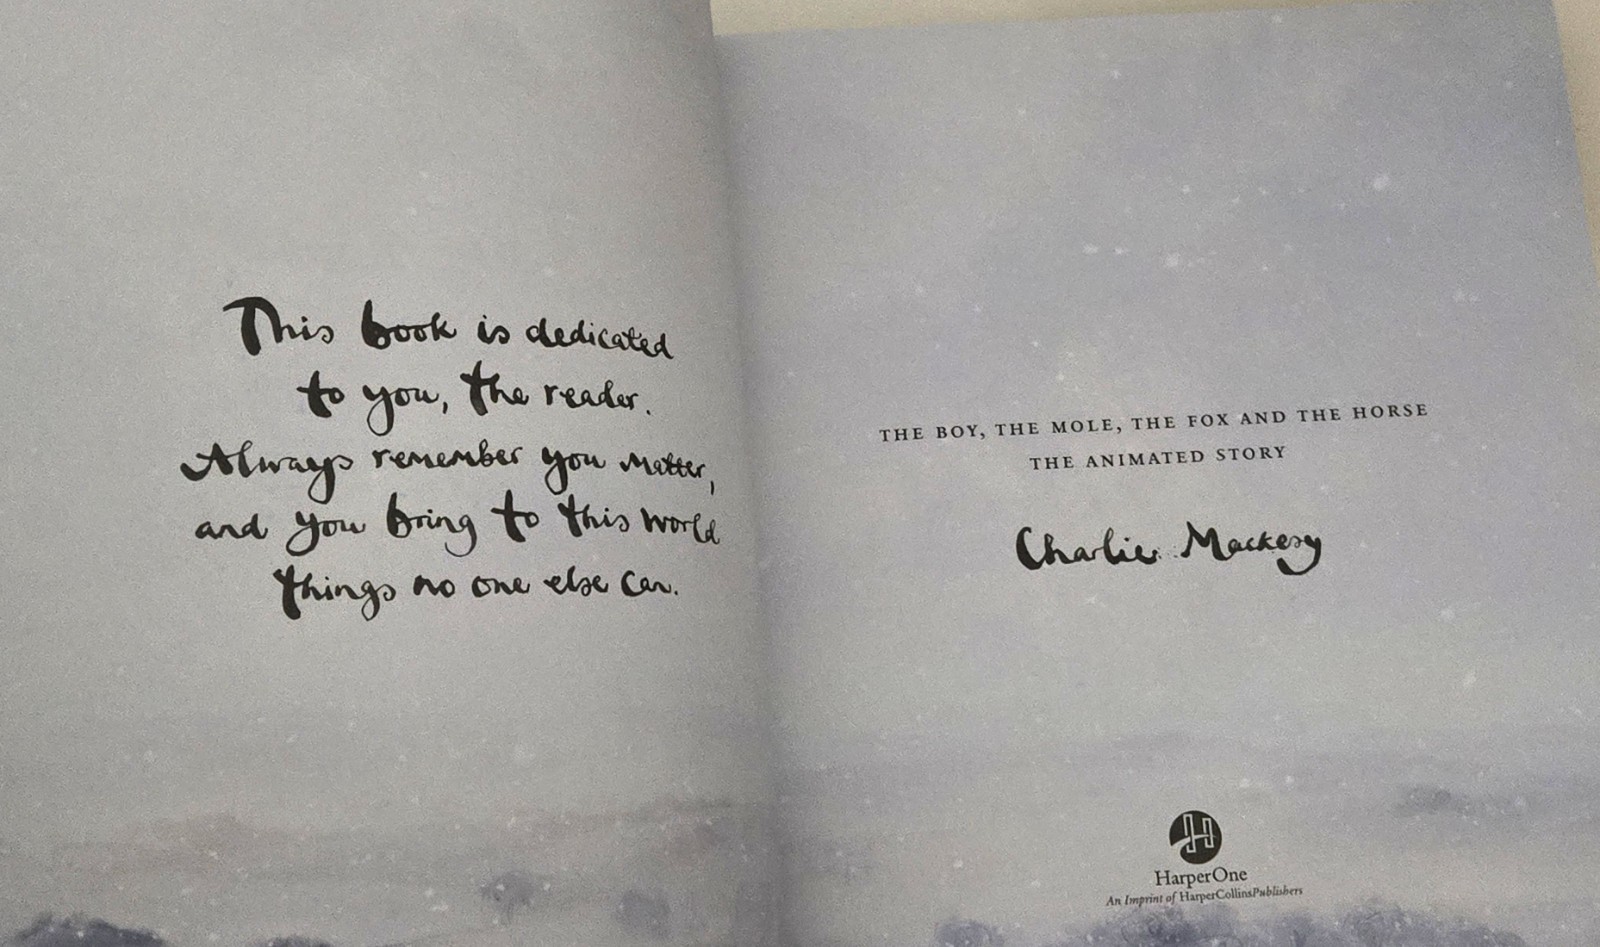 This book is dedicated
to you, the reader.
Always remember you matter,
and you bring to this world
things no one else can.
THE BOY, THE MOLE, THE FOX AND THE HORSE
THE ANIMATED STORY
Charlie Mackesy
H
HarperOne
An Imprint of HarperCollinsPublishers